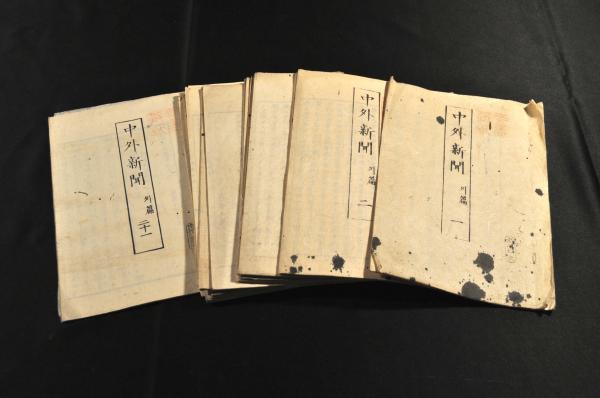 中外新聞 外篇 一
中外新聞 外篇 二
中外新聞 外篇 二十一